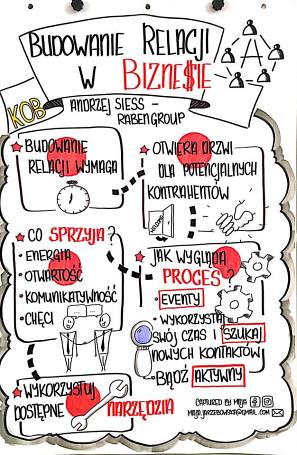 BUDOWANIE RELACJI
W BIZNE$IE
KOB
ANDRZEJ SIESS -
RABEN GROUP
BUDOWANIE
RELACJI WYMAGA
OTWIERA DRZWI
DLA POTENCJALNYCH
KONTRAHENTÓW
CO SPRZYJA?
• ENERGIA
• OTWARTOŚĆ
• KOMUNIKATYWNOŚĆ
• CHĘCI
JAK WYGLĄDA
PROCES?
• EVENTY
• WYKORZYSTAJ
SWÓJ CZAS I SZUKAJ
NOWYCH KONTAKTÓW
• BĄDŹ AKTYWNY
WYKORZYSTUJ
DOSTĘPNE NARZĘDZIA
CAPTURED BY MAJA